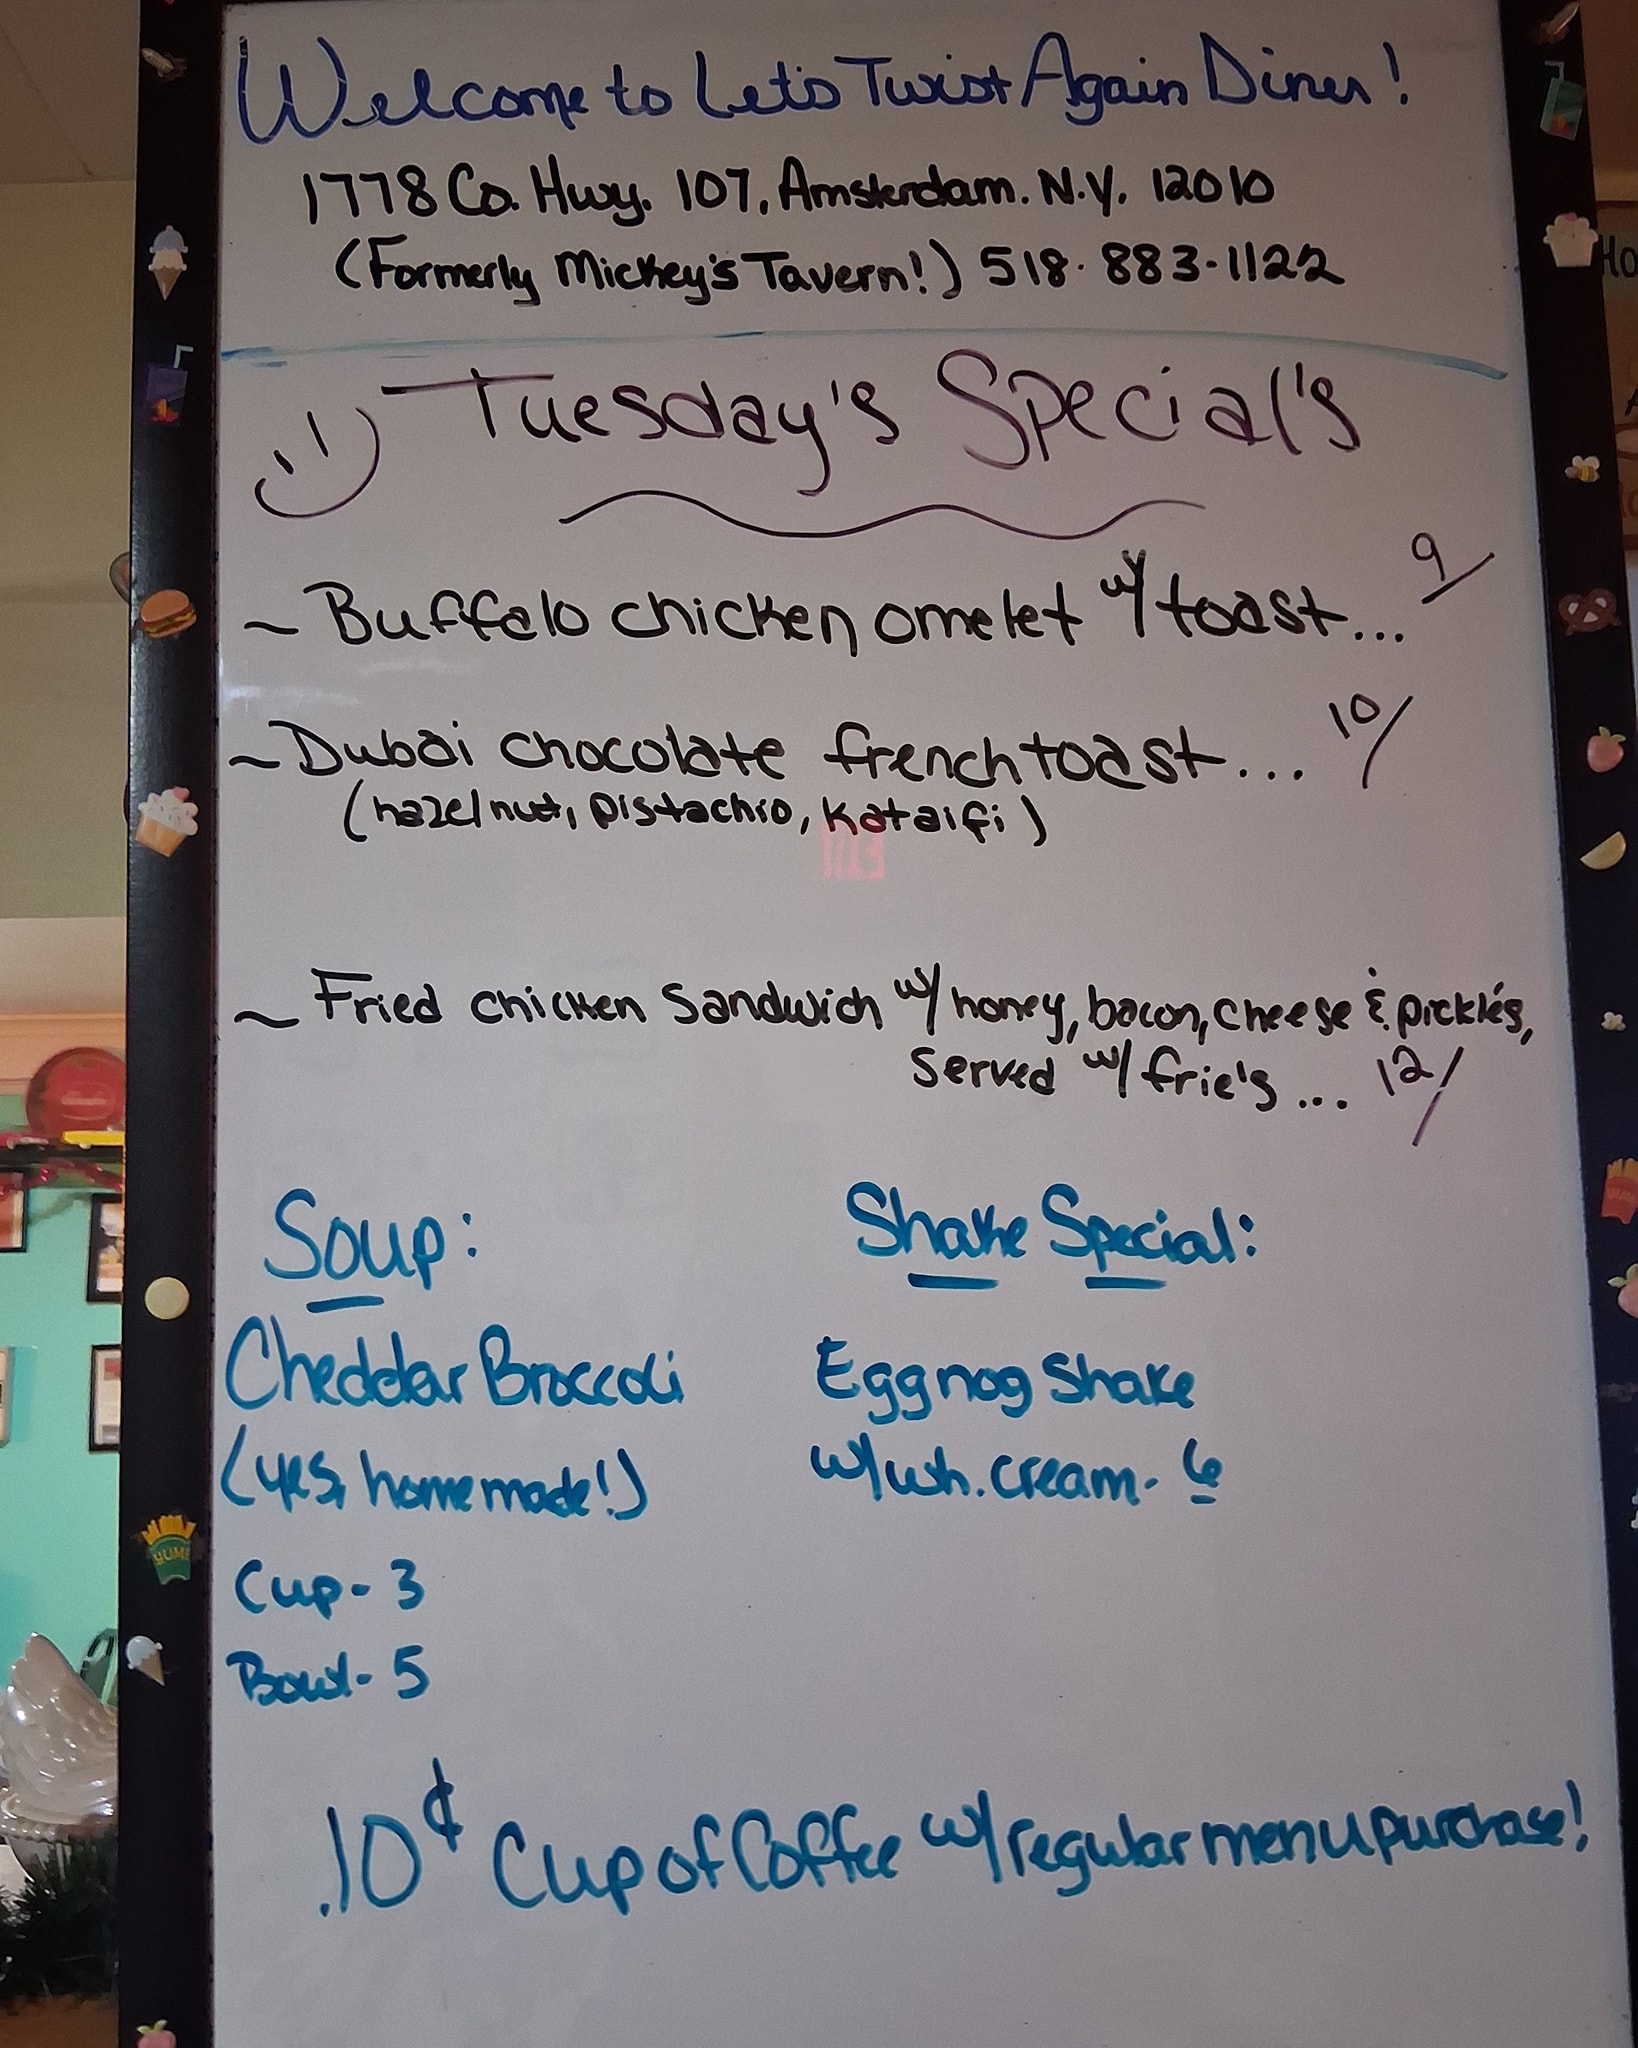 Welcome to Let's Twist Again Diner!
1778 Co. Hwy. 107, Amsterdam. N.Y. 12010
(Formerly Mickey's Tavern!) 518-883-1122
Tuesday's Special's
~ Buffalo chicken omelet w/ toast... 9/
~ Dubai chocolate french toast... 10/
(hazelnut, pistachio, Kataifi)
~ Fried chicken sandwich w/ honey, bacon, cheese & pickles,
served w/ frie's ... 12/
Soup:
Cheddar Broccoli
(yes, homemade!)
Cup- 3
Bowl- 5
Shake Special:
Eggnog Shake
w/ wh. cream- 6
.10¢ Cup of Coffee w/ regular menu purchase!
YUM!